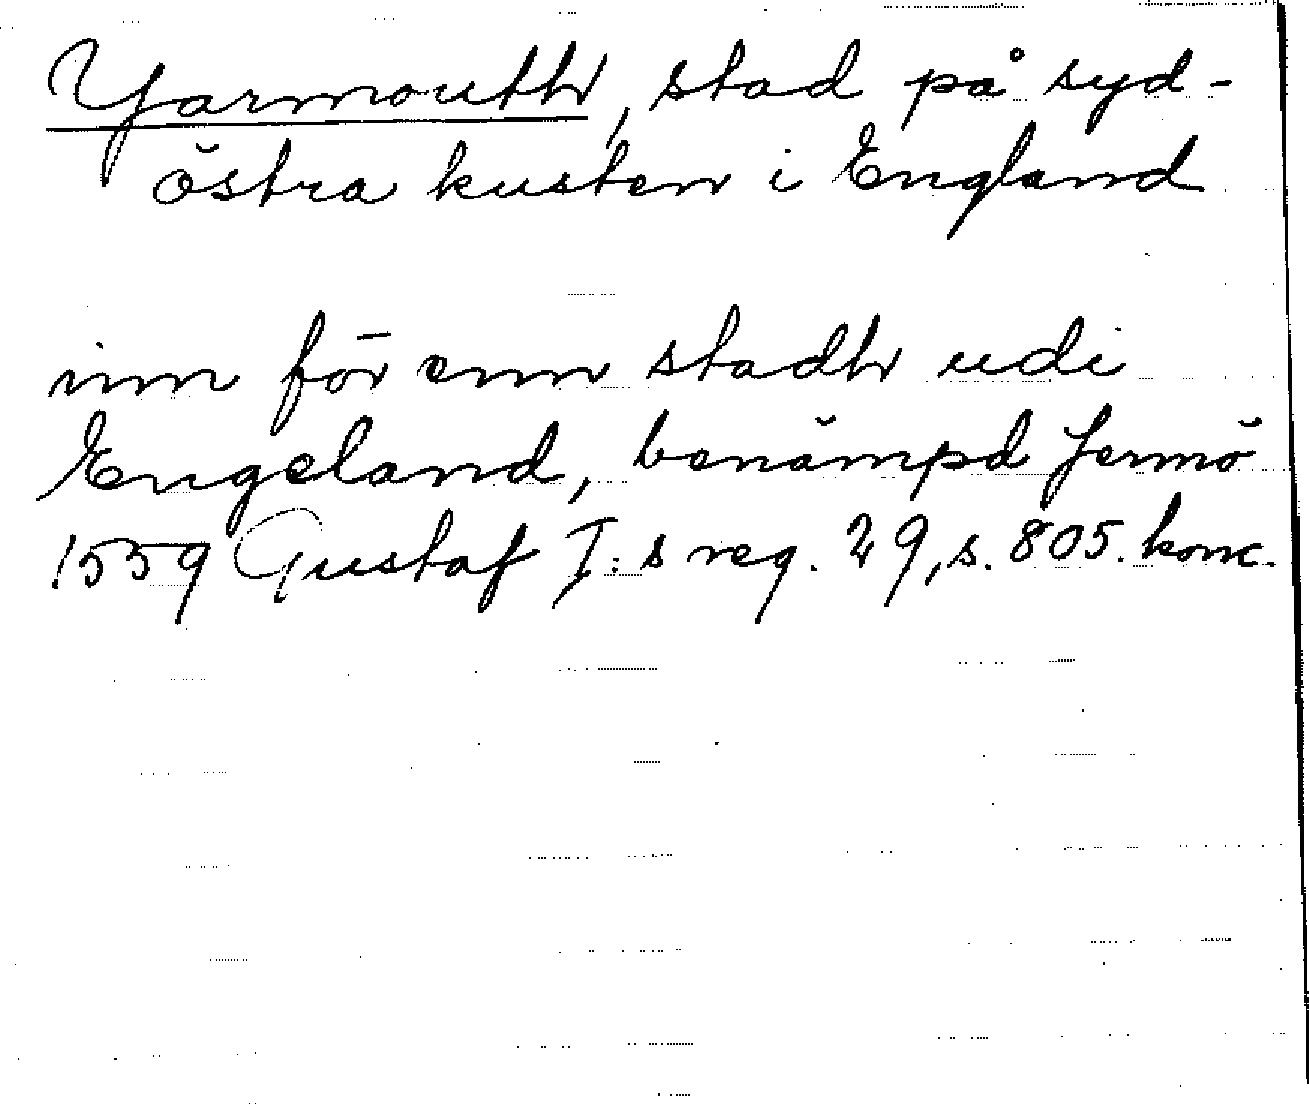 Yarmouth, stad på syd-
östra kusten i England
inn för enn stadh udi
Engeland, benämpd Jermö
1559 Gustaf I:s reg. 29, s. 805. konc.